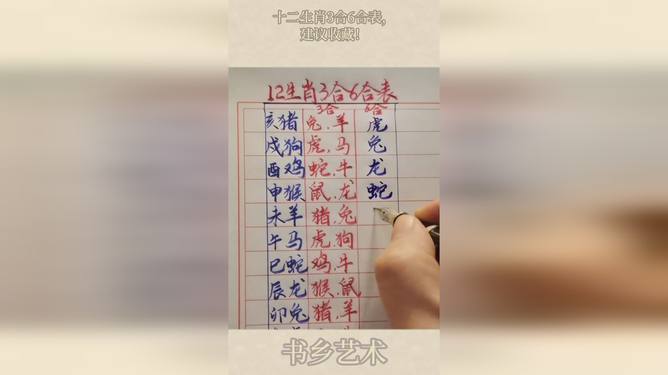 十二生肖3合6合表,
建议收藏!
12生肖3合6合表
3合 6合
亥猪 兔、羊 虎
戌狗 虎、马 兔
酉鸡 蛇、牛 龙
申猴 鼠、龙 蛇
未羊 猪、兔
午马 虎、狗
巳蛇 鸡、牛
辰龙 猴、鼠
卯兔 猪、羊
书乡艺术